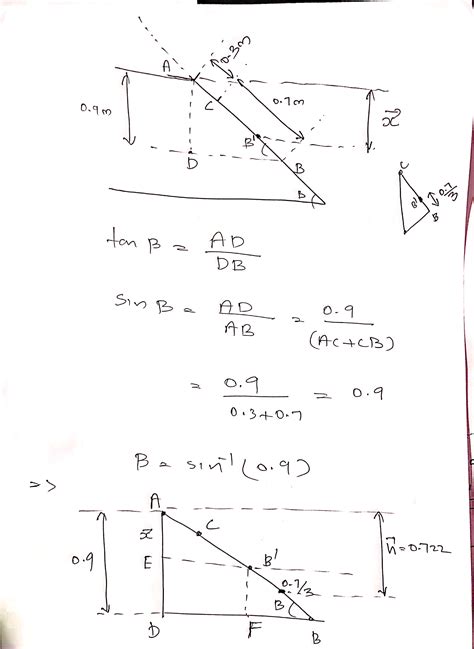 A
0.3m
0.9m
C
0.7m
x⃗
B'
D
B
B
C
B'
0.7/3
B
tan B = AD/DB
Sin B = AD/AB = 0.9/(AC+CB)
= 0.9/0.3+0.7 = 0.9
=> B = sin⁻¹(0.9)
A
x⃗
C
0.9
E
B'
h⃗=0.722
0.7/3
B
D
F
B